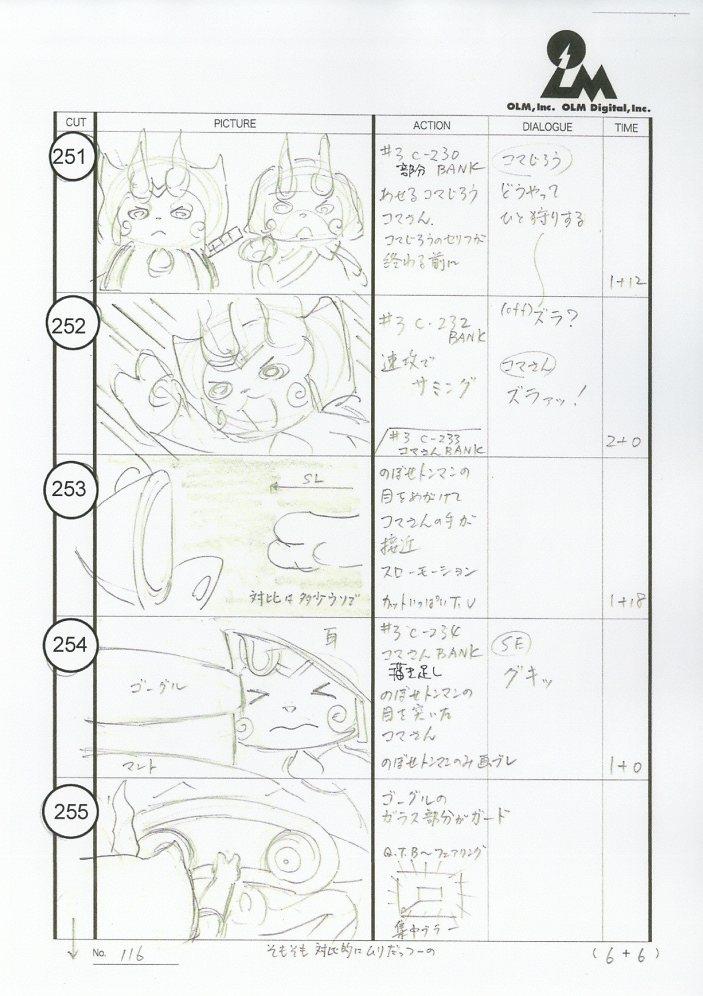 OLM, Inc. OLM Digital, Inc.
CUT PICTURE ACTION DIALOGUE TIME
251
#3 C-230
部分 BANK
あせるコマじろう
コマさん
コマじろうのセリフが
終わる前に
コマじろう
どうやって
ひと狩りする
1+12
252
#3 C-232
BANK
連攻で
サミング
#3 C-233
コマさんBANK
(off)ズラ?
コマさん
ズラァッ!
2+0
253
SL
対比は多少ウソで
のぼせトンマンの
目をめがけて
コマさんの手が
接近
スローモーション
カットいっぱいT.U
1+18
254
耳
ゴーグル
マント
#3 C-234
コマさんBANK
描き足し
のぼせトンマンの
目を突いた
コマさん
のぼせトンマンのみ画ブレ
SE
グキッ
1+0
255
ゴーグルの
ガラス部分がガード
Q.T.B～フェアリング
集中ブラー
No. 116
そもそも対比的にムリだっつーの
(6+6)